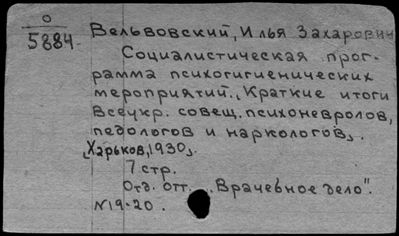 0
5884.
Вельвовский, Илья Захарович
Социалистическая прог-
рамма психогигиенических
мероприятий. „Краткие итоги
Всеукр. совещ. психоневролов,
педологов и наркологов„.
„Харьков, 1930„.
7 стр.
Отд. отт. „Врачебное дело".
N19-20.